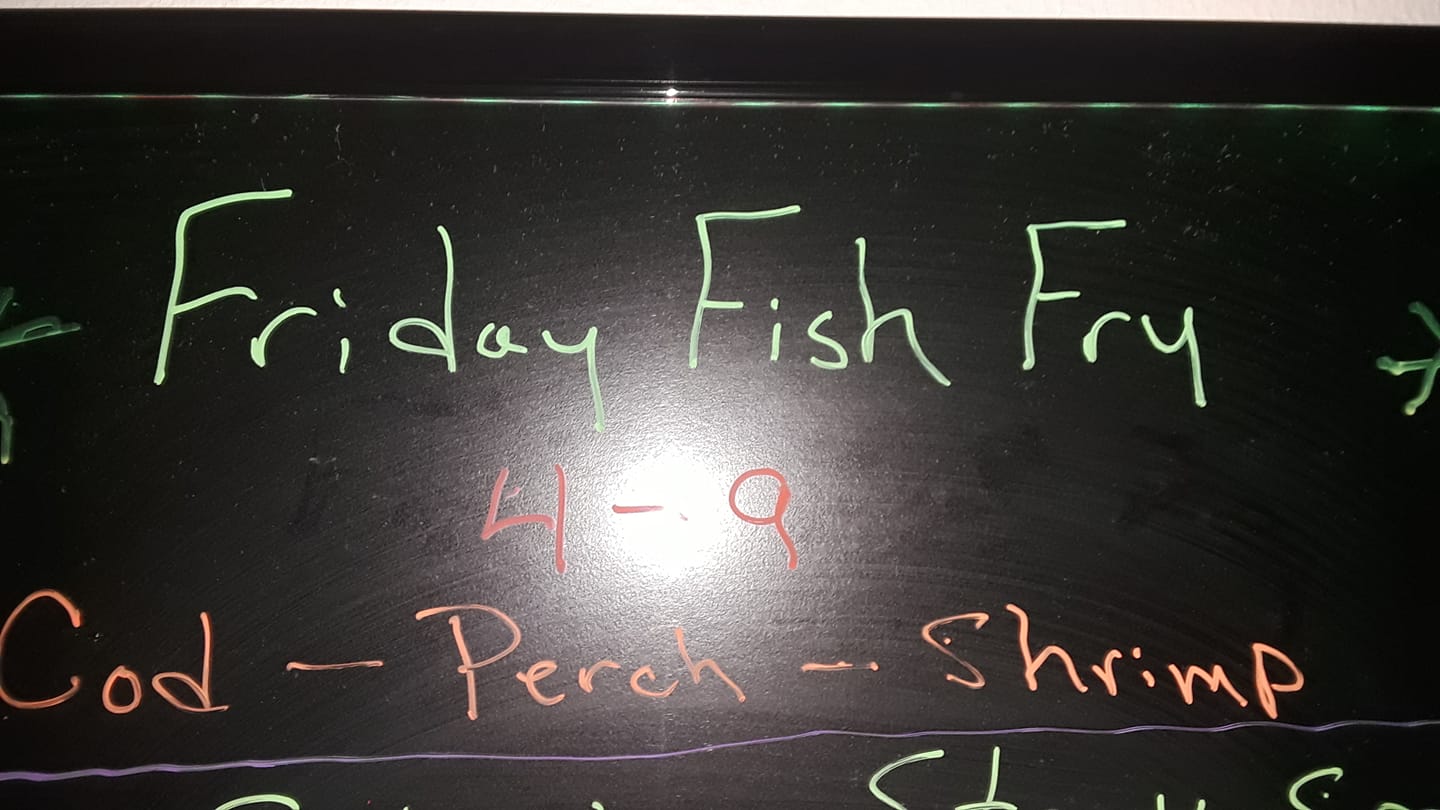 Friday Fish Fry
4 - 9
Cod - Perch - Shrimp